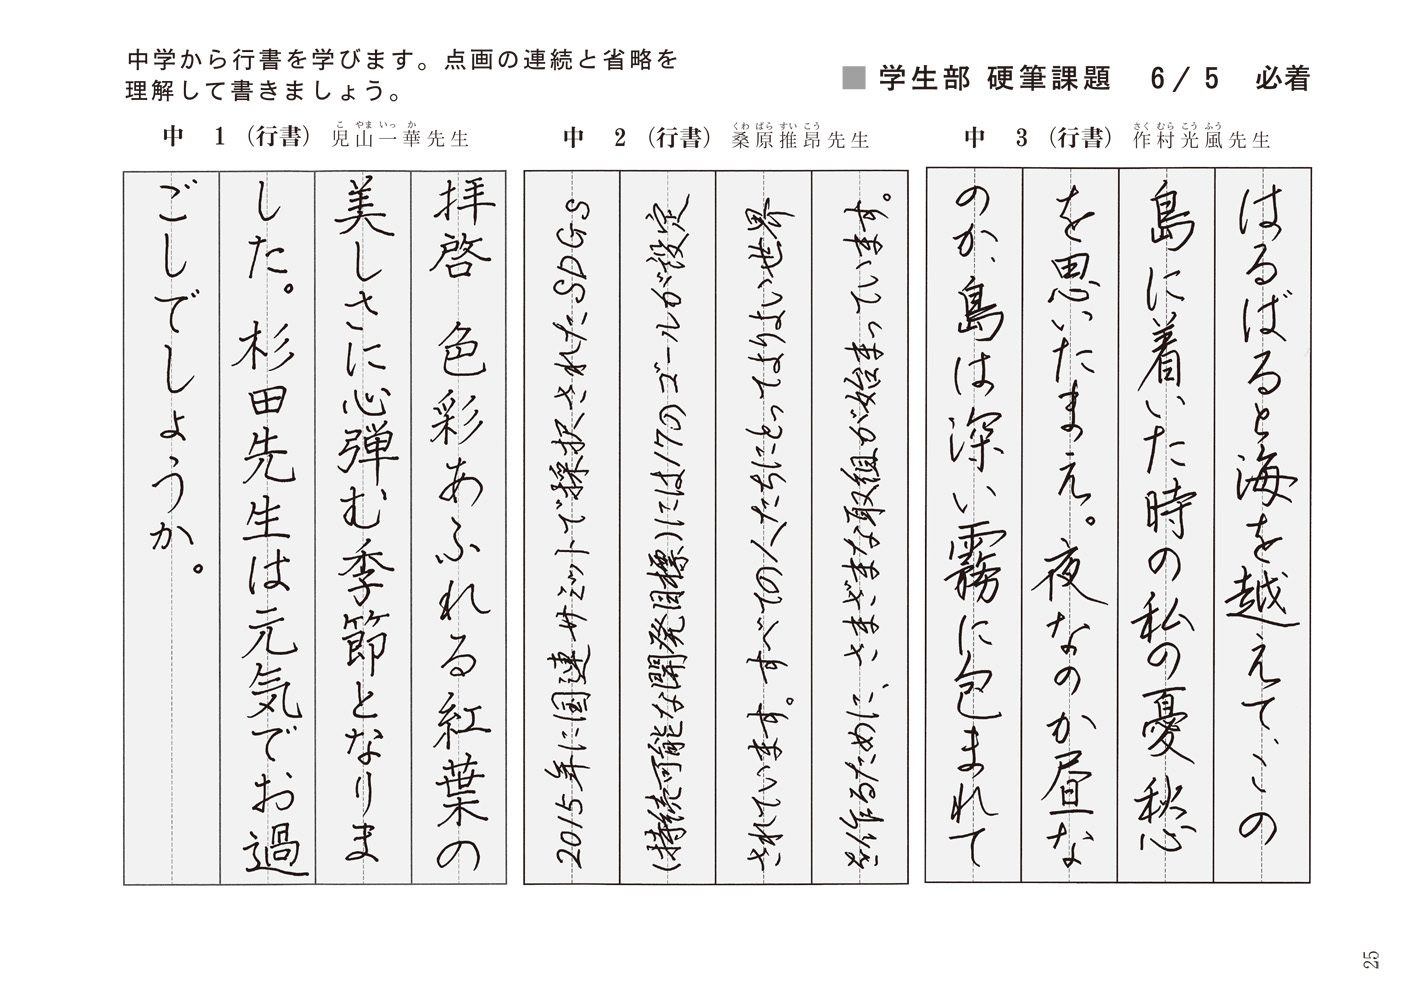 中学から行書を学びます。点画の連続と省略を
理解して書きましょう。
■ 学生部 硬筆課題　6/5　必着
中　3（行書）　作村光風先生
さく むら こう ふう
はるばると海を越えて、この
島に着いた時の私の憂愁
を思いたまえ。夜なのか昼な
のか、島は深い霧に包まれて
中　2（行書）　桑原推昂先生
くわ ばら すい こう
2015年に国連サミットで採択されたSDGs
(持続可能な開発目標)には17のゴールが設定
されています。すべての人たちにとってよりよい世界
を作るために、さまざまな取組が始まっています。
中　1（行書）　児山一華先生
こ やま いっ か
拝啓　色彩あふれる紅葉の
美しさに心弾む季節となりま
した。杉田先生は元気でお過
ごしでしょうか。
25